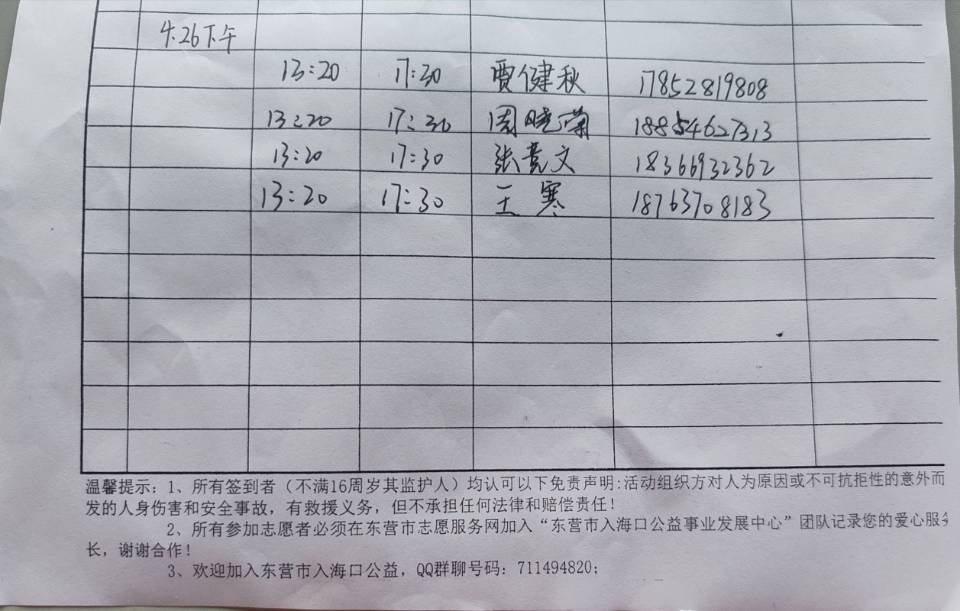 4.26下午
13:20 17:30 贾健秋 17852819808
13:20 17:30 周晓菊 18854627313
13:20 17:30 张竟文 18366932362
13:20 17:30 王寒 18763708183
温馨提示: 1、所有签到者（不满16周岁其监护人）均认可以下免责声明:活动组织方对人为原因或不可抗拒性的意外而
发的人身伤害和安全事故，有救援义务，但不承担任何法律和赔偿责任！
2、所有参加志愿者必须在东营市志愿服务网加入“东营市入海口公益事业发展中心”团队记录您的爱心服务
长，谢谢合作！
3、欢迎加入东营市入海口公益，QQ群聊号码: 711494820;